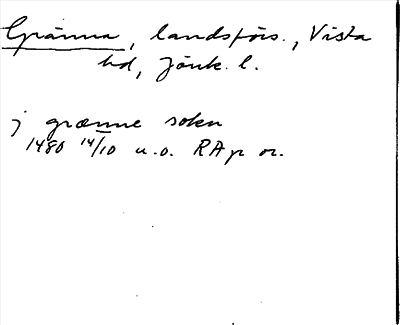 Gränna, landsförs., Vista
hd, Jönk. l.
j grænne sokn
1480 14/10 u.o. RAp or.